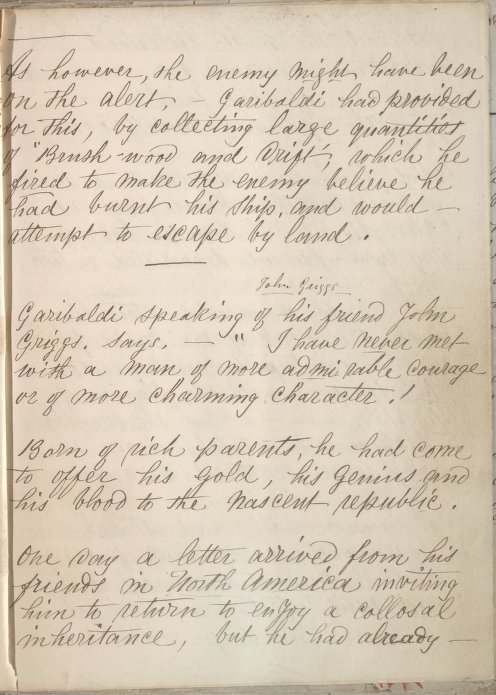 As however, the enemy might have been
on the alert, – Garibaldi had provided
for this, by collecting large quantities
of "Brush-wood and Drift", which he
fired to make the enemy believe he
had burnt his ship, and would –
attempt to escape by land.
John Griggs
Garibaldi speaking of his friend John
Griggs. says. – " I have never met
with a man of more admirable courage
or of more charming character.!
Born of rich parents, he had come
to offer his gold, his Genius and
his blood to the nascent republic.
One day a letter arrived from his
friends in North America inviting
him to return to enjoy a collosal
inheritance, but he had already –